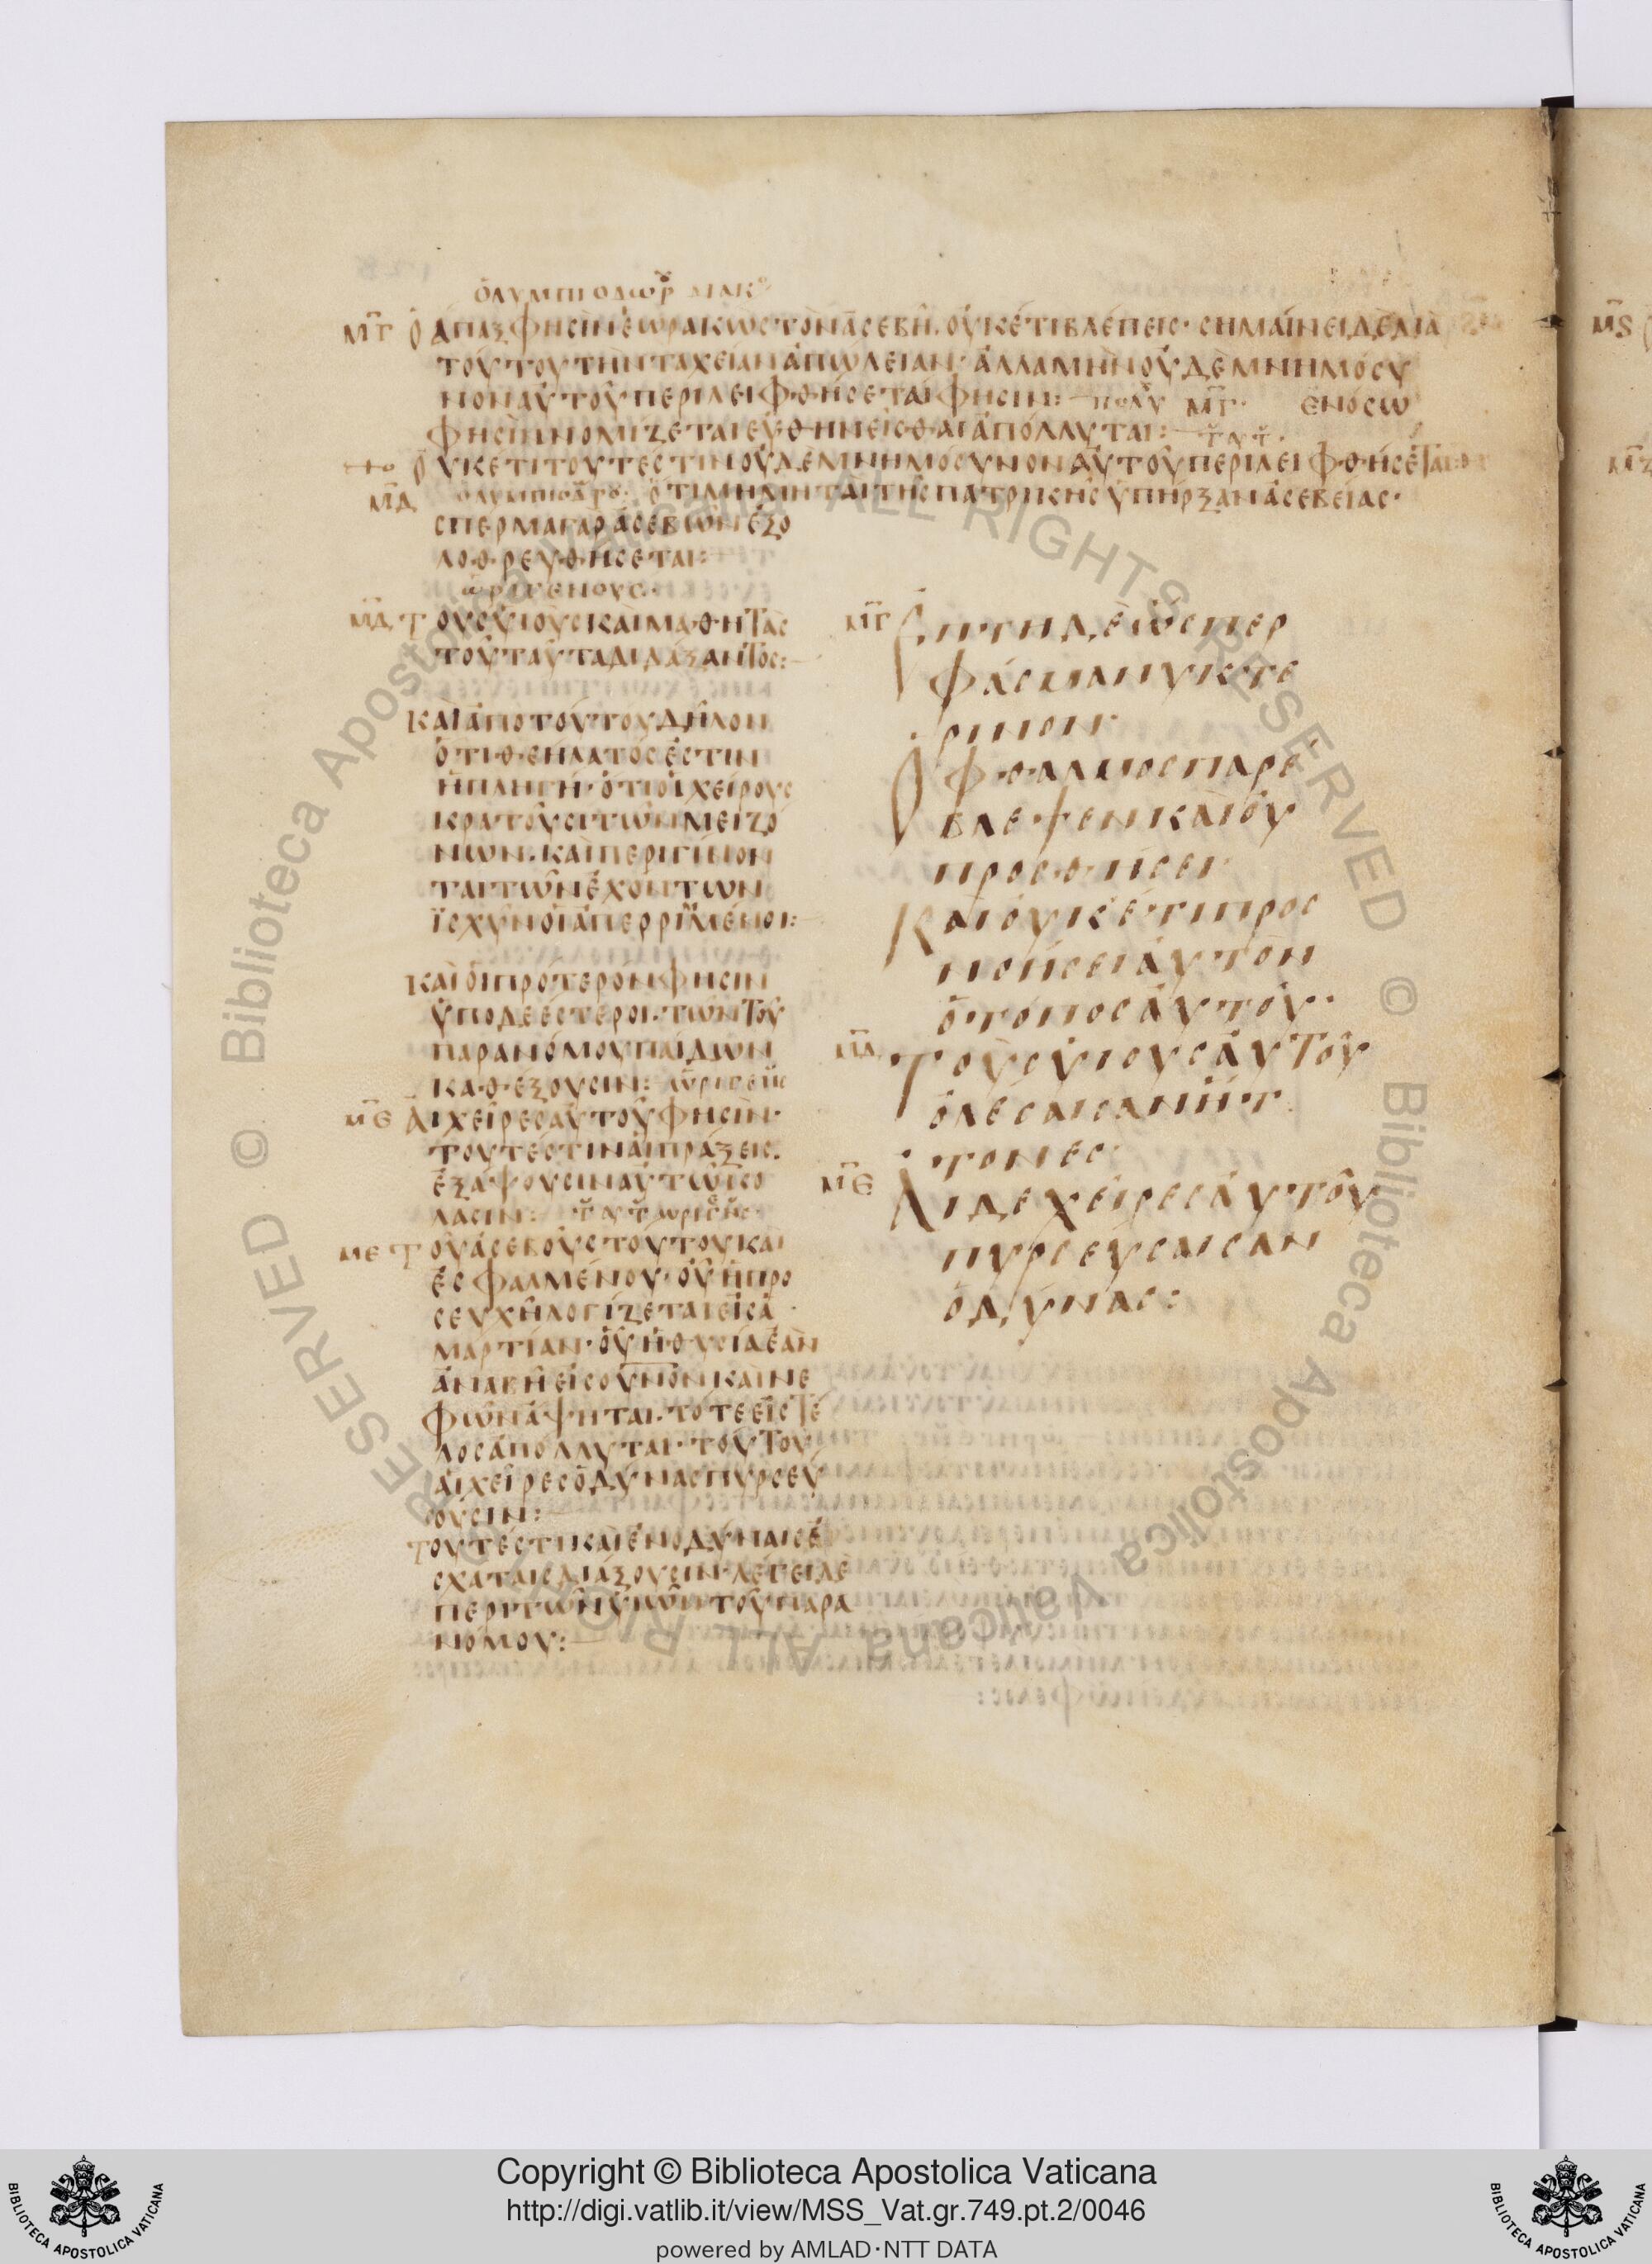 ὈΛΥΜΠΙΟΔΩΡ ΔΙΑΚ
ΜΓ ὉΑΠΑΞΦΗCῚΝἙΩΡΑΚῺCΤῸΝἈCΕΒΗ͂. ΟΥ̓ΚΈΤΙΒΛΈΠΕΙC· CΗΜΑΊΝΕΙΔῈΔΙᾺ
ΤΟΎΤΟΥΤῊΝΤΑΧΕΙ͂ΑΝἈΠΏΛΕΙΑΝ· ἈΛΛΑΜῊΝΟΥ̓ΔΕΜΝΗΜΌCΥ
ΝΟΝΑΥ̓ΤΟΥ͂ΠΕΡΙΛΕΙΦΘΉCΕΤΑΊΦΗCΙΝ:— ΠΟΛΥ ΜΓ· ΕΝΟCΩ
ΦΗCῚΝΟΜΙΖΕΤΑΙΕΥ̓ΘΗΝΕΙ͂CΘΑΙἈΠΌΛΛΥΤΑΙ:—
ΟΥΚΕΤΙΤΟΥΤΈCΤΙΝΟΥ̓ΔΕΜΝΗΜΟCΥΝΟΝΑΥ̓ΤΟΥ͂ΠΕΡΙΛΕΙΦΘΉCΕΤΑΙ:
ΜΔ ὈΛΥΜΠΙΟΔΡΟ: ὍΤΙΜΙΜΗΤΑῚΤΗ͂CΠΑΤΡΙΚΗ͂CὙΠΗ͂ΡΞΑΝἈCΕΒΕΊΑC·
CΠΕΡΜΑΓΑΡἈCΕΒΩ͂ΝἘΞΟ
ΛΟΘΡΕΥΘΗCΕΤΑΙ:
ὨΡΙΓΕΝΟΥC·
ΜΔ ΤΟΥCΥἹΟῪCΚΑῚΜΑΘΗΤᾺC
ΤΟΥ͂ΤΑΥ͂ΤΑΔΙΔΆΞΑΝΤΟC:—
ΚΑῚἈΠΟΤΟΎΤΟΥΔΗ͂ΛΟΝ
ὍΤΙΘΕΗΛΑΤΌCἘCΤΙΝ
ἩΠΛΗΓΉ· ὍΤΙΟἹΧΕΊΡΟΥC
ΚΡΑΤΟΥ͂CΙΤΩ͂ΝΜΕΙΖΌ
ΝΩΝ. ΚΑῚΠΕΡΙΓΊΝΟΝ
ΤΑΙΤΩ͂ΝἘΧΌΝΤΩΝ
ἸCΧῪΝΟἹἈΠΕΡΡΙΜΜΈΝΟΙ:
ΚΑῚΟἹΠΡΌΤΕΡΟΝΦΗCΙΝ
ὙΠΟΔΕΈCΤΕΡΟΙ· ΤΩ͂ΝΤΟΥ͂
ΠΑΡΑΝΌΜΟΥΠΑΊΔΩΝ
ΚΑΘΈΞΟΥCΙΝ: ὨΡΙΓΕΝ
ΜΕ ΑἹΧΕΙ͂ΡΕCΑΥ̓ΤΟΥ͂ΦΗCῚΝ·
ΤΟΥΤΈCΤΙΝΑἹΠΡΆΞΕΙC.
ἘΞΆΨΟΥCΙΝΑΥ̓ΤΩ͂ΚΌ
ΛΑCΙΝ: ΤΟΥ ΑΥΤ ΩΡΙΓΕΝ
ΜΕ ΤΟΥ͂ἈCΕΒΟΥ͂CΤΟΎΤΟΥΚΑῚ
ἘCΦΑΛΜΈΝΟΥ· ΟΥ̓ΧἩΠΡΟ
CΕΥΧῊΛΟΓΊΖΕΤΑΙΕἸCἉ
ΜΑΡΤΊΑΝ· ΟΥ̓ΧἩΘΥCΊΑἘᾺΝ
ἈΝΑΒΗ͂ΕἸCΟΥΝΟΝΚΑῚΝΕ
ΦΩ͂ΝἍΨΗΤΑΙ· ΤΌΤΕΕἸCΤΈ
ΛΟCἈΠΌΛΛΥΤΑΙ· ΤΟΎΤΟΥ
ΑἹΧΕΙ͂ΡΕCὈΔΎΝΑCΠΥΡCΕΎ
ΟΥCΙΝ:—
ΤΟΥΤΈCΤΙΚΑῚἘΝΟΔΎΝΑΙCἘ
CΧΆΤΑΙCΔΙΆΞΟΥCΙΝ· ΛΈΓΕΙΔῈ
ΠΕΡῚΤΩ͂ΝΥἹΩ͂ΝΤΟΥ͂ΠΑΡΑ
ΝΌΜΟΥ:—
ΜΓ ἘΠΤΗΔῈὩCΠΕΡ
ΦΆCΜΑΝΥΚΤΕ
ΡΙΝΟΝ·
ὈΦΘΑΛΜΟCΠΑΡΈ
ΒΛΕΨΕΝΚΑῚΟΥ̓
ΠΡΟCΘΉCΕΙ·
ΚΑῚΟΥ̓ΚΈΤΙΠΡΟC
ΝΟΉCΕΙΑΥ̓ΤῸΝ
ὉΤΌΠΟCΑΥ̓ΤΟΥ͂·
ΜΔ ΤΟῪCΥἹΟΥCΑΥ̓ΤΟΥ͂
ὈΛΈCΑΙCΑΝἭΤ
ΤΟΝΕC·
ΜΕ ΑἹΔΕΧΕΙ͂ΡΕCΑΥ̓ΤΟΥ͂
ΠΥΡCΕΎCΑΙCΑΝ
ὈΔΎΝΑC:
ΜS
Copyright © Biblioteca Apostolica Vaticana
http://digi.vatlib.it/view/MSS_Vat.gr.749.pt.2/0046
powered by AMLAD·NTT DATA
BIBLIOTECA APOSTOLICA VATICANA
BIBLIOTECA APOSTOLICA VATICANA
© Biblioteca Apostolica Vaticana ALL RIGHTS RESERVED © Biblioteca Apostolica Vaticana ALL RIGHTS RESERVED